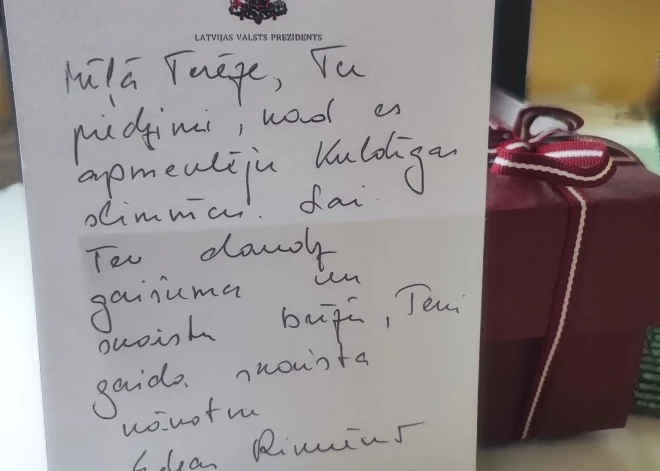 LATVIJAS VALSTS PREZIDENTS
Mīļā Terēze, Tu
piedzimi, kad es
apmeklēju Kuldīgas
slimnīcu. Lai
Tev daudz
gaišuma un
skaistu brīžu, Tevi
gaida skaista
nākotne
Edgars Rinkēvičs